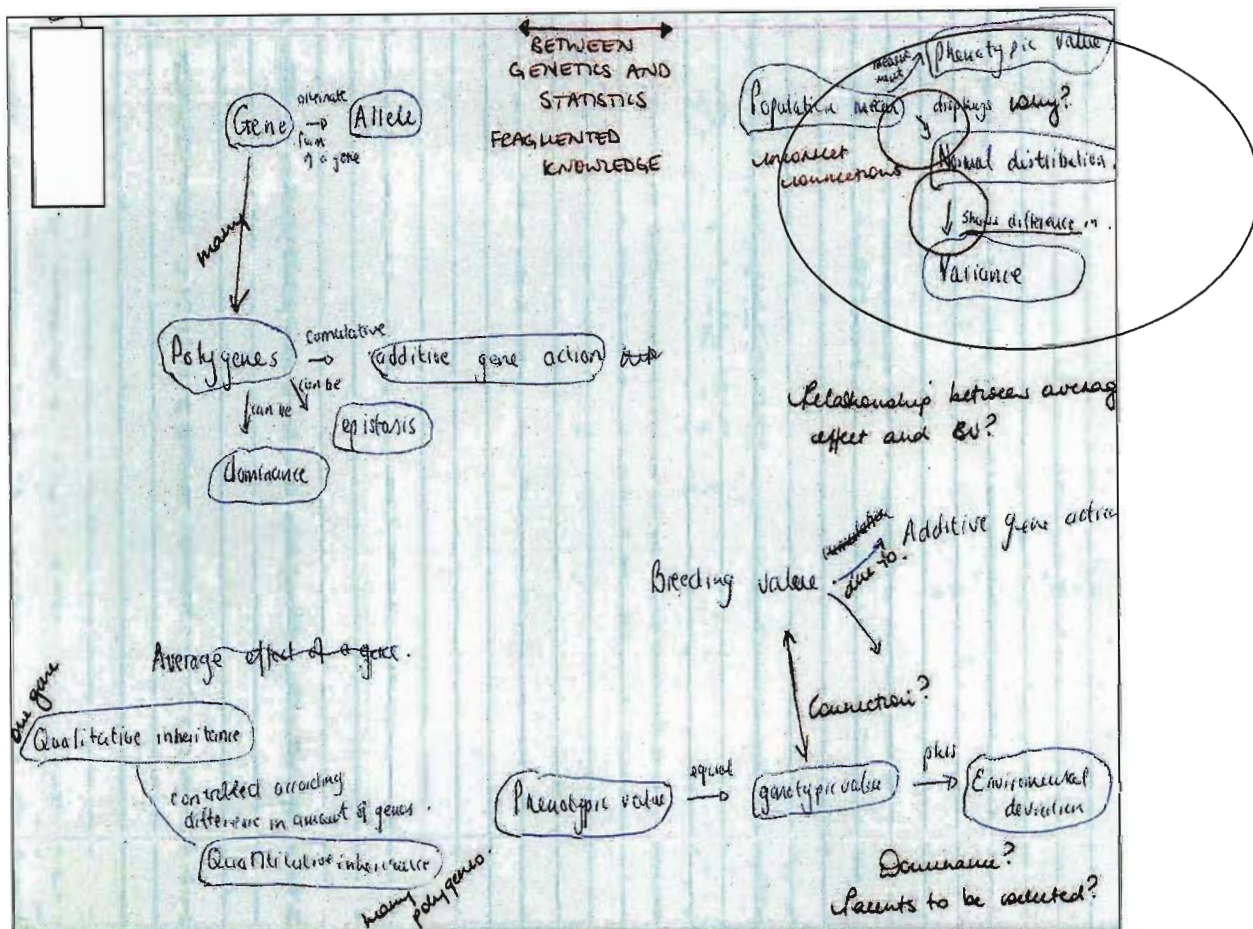 BETWEEN
GENETICS AND
STATISTICS
FRAGMENTED
KNOWLEDGE
Gene
alternate
form
of a gene
Allele
many
Polygenes
cumulative
additive gene action
can be
epistasis
can be
dominance
Population mean
measure
ment
Phenotypic value
displays why?
incorrect
connections
Normal distribution
shows difference in.
Variance
Relationship between averag
effect and BV?
Breeding value
due to.
Additive gene action
Connection?
Average effect of a gene.
one gene
Qualitative inheritance
controlled according
difference in amount of genes.
Quantitative inheritance
many polygenes.
Phenotypic value
equal
genotypic value
plus
Enviromental
deviation
Dominance?
Parents to be selected?